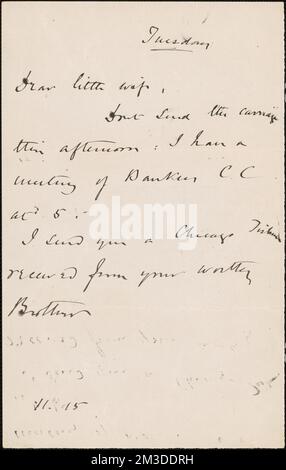 Tuesday
Dear little wife,
Dont send the carriage
this afternoon: I have a
meeting of Bankers C. C.
at 5.
I send you a Chicago Tribune
received from your worthy
Brother
11.15
alamy
Image ID: 2M3DDRH
www.alamy.com